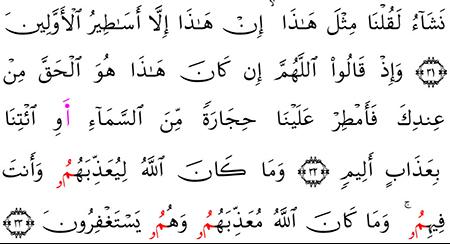 نَشَآءُ لَقُلْنَا مِثْلَ هَـٰذَآ ۙ إِنْ هَـٰذَآ إِلَّآ أَسَـٰطِيرُ ٱلْأَوَّلِينَ
﴿٣١﴾ وَإِذْ قَالُوا۟ ٱللَّهُمَّ إِن كَانَ هَـٰذَا هُوَ ٱلْحَقَّ مِنْ
عِندِكَ فَأَمْطِرْ عَلَيْنَا حِجَارَةً مِّنَ ٱلسَّمَآءِ أَوِ ٱئْتِنَا
بِعَذَابٍ أَلِيمٍ ﴿٣٢﴾ وَمَا كَانَ ٱللَّهُ لِيُعَذِّبَهُمُۥ وَأَنتَ
فِيهِمُۥ ۚ وَمَا كَانَ ٱللَّهُ مُعَذِّبَهُمُۥ وَهُمُۥ يَسْتَغْفِرُونَ ﴿٣٣﴾